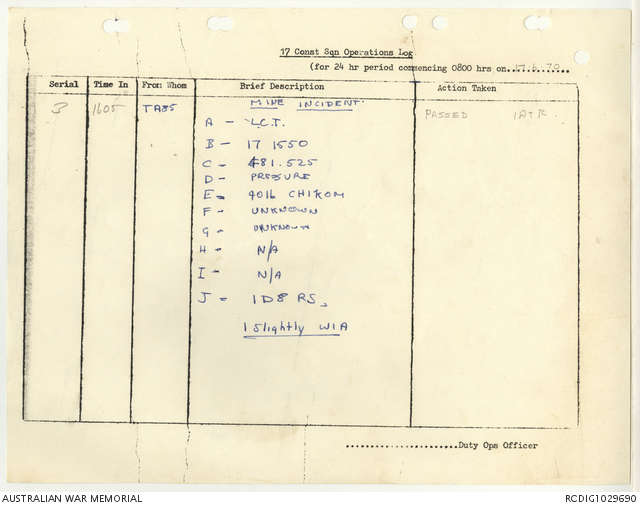 17 Const Sqn Operations Log
(for 24 hr period commencing 0800 hrs on 17.6.70
Serial Time In From: Whom Brief Description Action Taken
3 1605 TA85 MINE INCIDENT. PASSED 1ATF
A - L.C.T.
B - 17 1550
C - 481.525
D - PRESSURE
E - 40lb CHIKOM
F - UNKNOWN
G - UNKNOWN
H - N/A
I - N/A
J - 1 D8 RS,
1 Slightly WIA
Duty Ops Officer
AUSTRALIAN WAR MEMORIAL RCDIG1029690